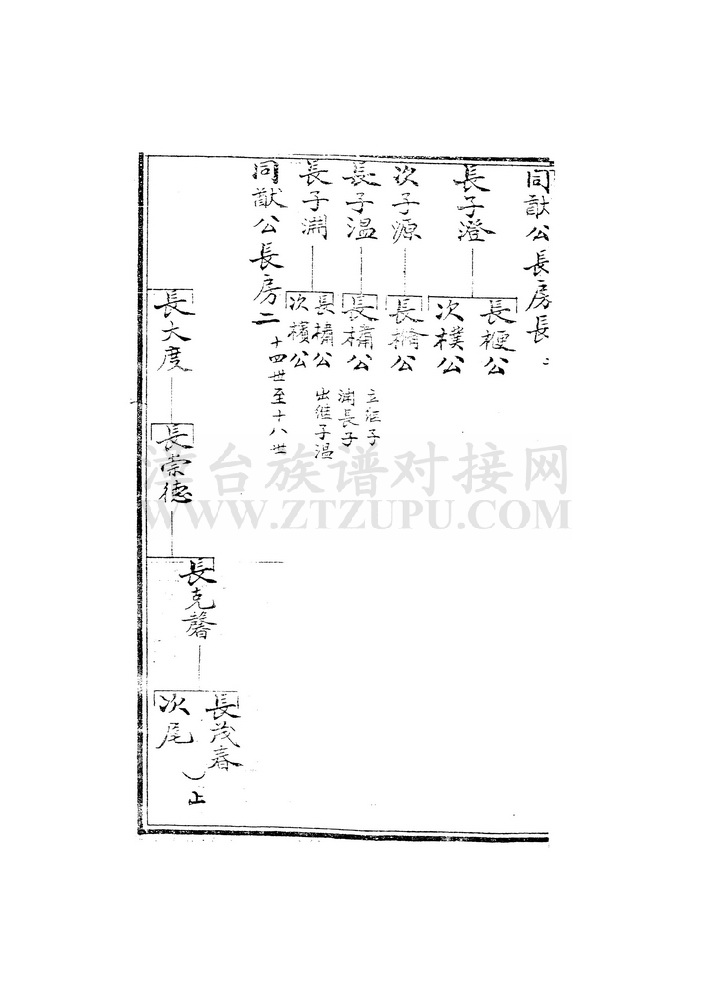 同猷公長房長二
長子澄
長梗公
次樸公
次子源
長檜公
長子溫
長橚公
立澁子
淵長子
長子淵
長橚公
出繼子溫
次檳公
同猷公長房二
十四世至十八世
長大度
長崇德
長克馨
長茂春
次尾
上
漳台族谱对接网
WWW.ZTZUPU.COM